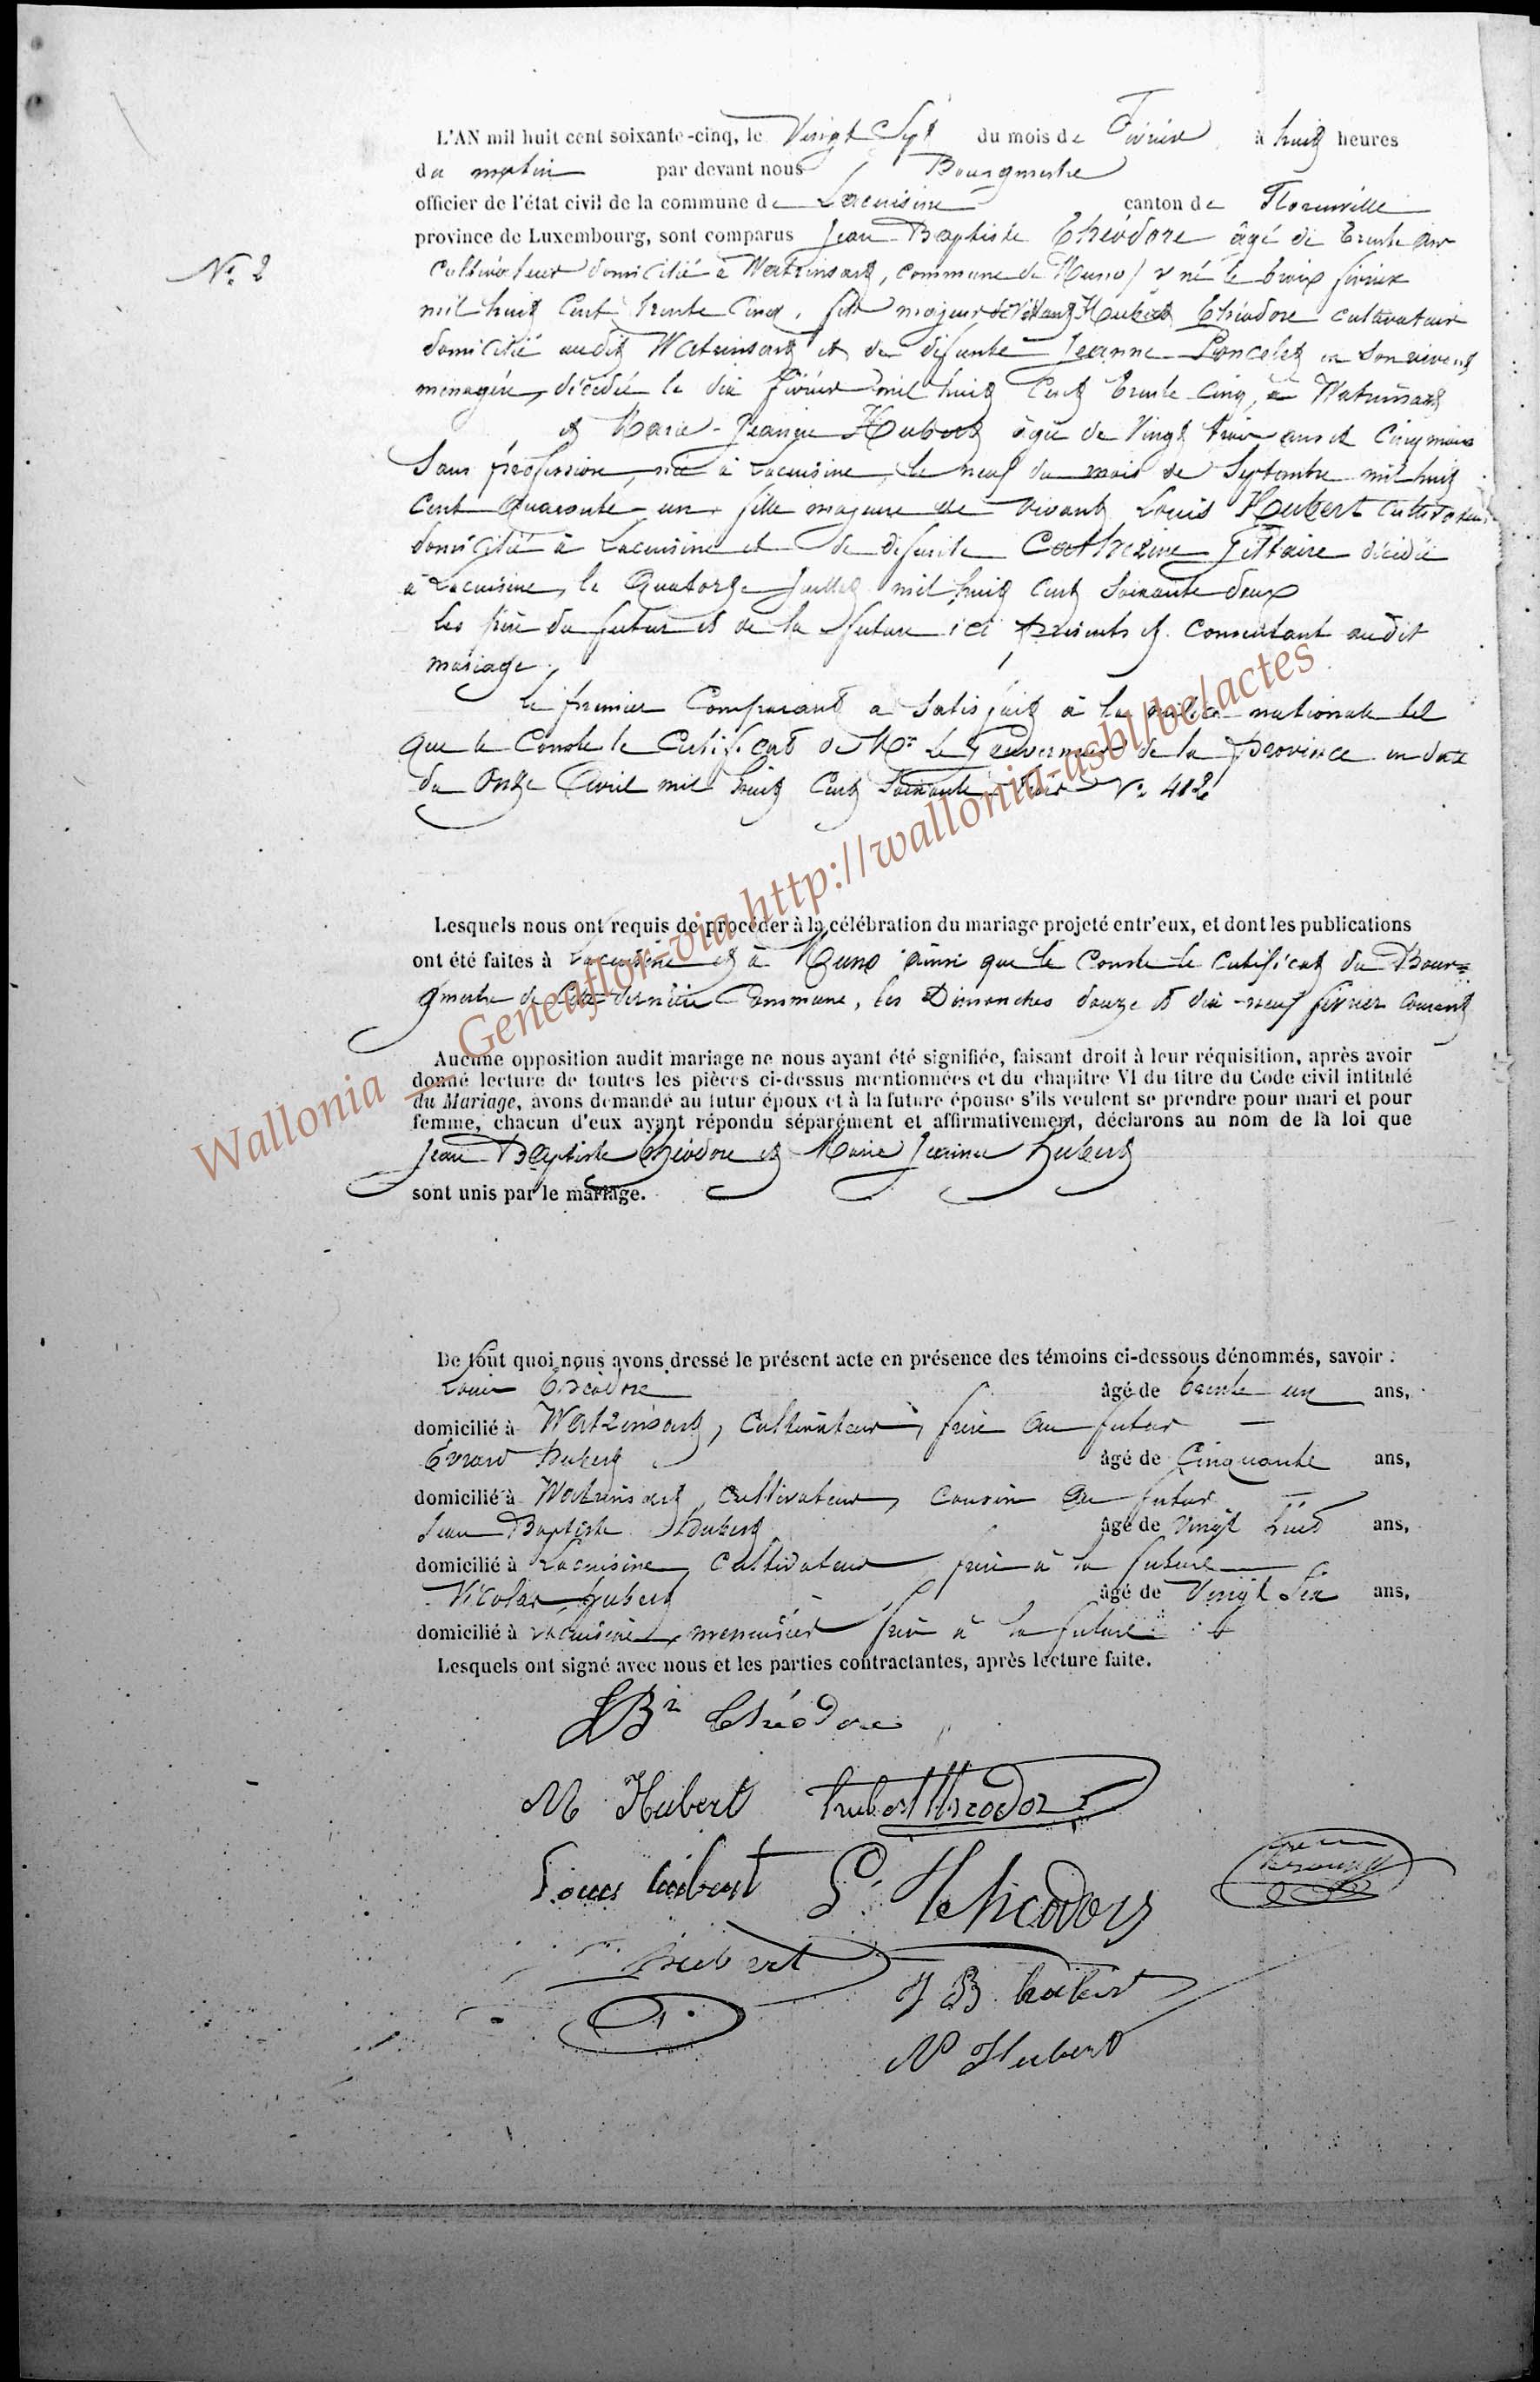 L'AN mil huit cent soixante-cinq, le Vingt Sept du mois de Février à huit heures
du matin par devant nous Bourgmestre
officier de l'état civil de la commune de Lacuisine canton de Florenville
province de Luxembourg, sont comparus Jean Baptiste Théodore âgé de Trente ans
N° 2
cultivateur domicilié à Watrinsart, commune de Muno, y né le trois février
mil huit cent trente cinq, fils majeur de vivant Hubert Théodore cultivateur
domicilié audit Watrinsart et de défunte Jeanne Poncelet en son vivant
ménagère, décédée le dix février mil huit cent trente cinq, à Watrinsart
et Marie-Jeanne Hubert âgée de Vingt trois ans et cinq mois
Sans profession, née à Lacuisine, le neuf du mois de Septembre mil huit
cent quarante-un, fille majeure de vivant Louis Hubert cultivateur
domicilié à Lacuisine et de défunte Catherine décédée
à Lacuisine, le Quatorze Juillet mil huit cent soixante deux
les père du futur et de la future ici présents et consentant audit
mariage.
Le premier Comparant a satisfait à la milice nationale tel
que le constate le Certificat de Mr le Gouverneur de la province en date
du onze Avril mil huit cent soixante trois N° 412
Lesquels nous ont requis de procéder à la célébration du mariage projeté entr'eux, et dont les publications
ont été faites à Lacuisine et à Muno ainsi que le Conste le Certificat du Bour=
gmestre de cette dernière Commune, les Dimanches douze et dix-neuf février courant
Aucune opposition audit mariage ne nous ayant été signifiée, faisant droit à leur réquisition, après avoir
donné lecture de toutes les pièces ci-dessus mentionnées et du chapitre VI du titre du Code civil intitulé
du Mariage, avons demandé au futur époux et à la future épouse s'ils veulent se prendre pour mari et pour
femme, chacun d'eux ayant répondu séparément et affirmativement, déclarons au nom de la loi que
Jean Baptiste Théodore et Marie Jeanne hubert
sont unis par le mariage.
De tout quoi nous avons dressé le présent acte en présence des témoins ci-dessous dénommés, savoir :
Louis Théodore âgé de trente un ans,
domicilié à Watrinsart, Cultivateur, frère au futur
Evrard hubert âgé de Cinquante ans,
domicilié à Watrinsart, cultivateur, cousin au futur
Jean Baptiste Hubert âgé de Vingt huit ans,
domicilié à Lacuisine, cultivateur frère à la future
Nicolas hubert âgé de Vingt Six ans,
domicilié à Lacuisine, menuisier frère à la future
Lesquels ont signé avec nous et les parties contractantes, après lecture faite.
JBte théodore
M Hubert hubert théodore
Louis hubert L. théodore
hubert
J B hubert
N Hubert
Wallonia _ Geneaflor-via http://wallonia-asbl/be/actes